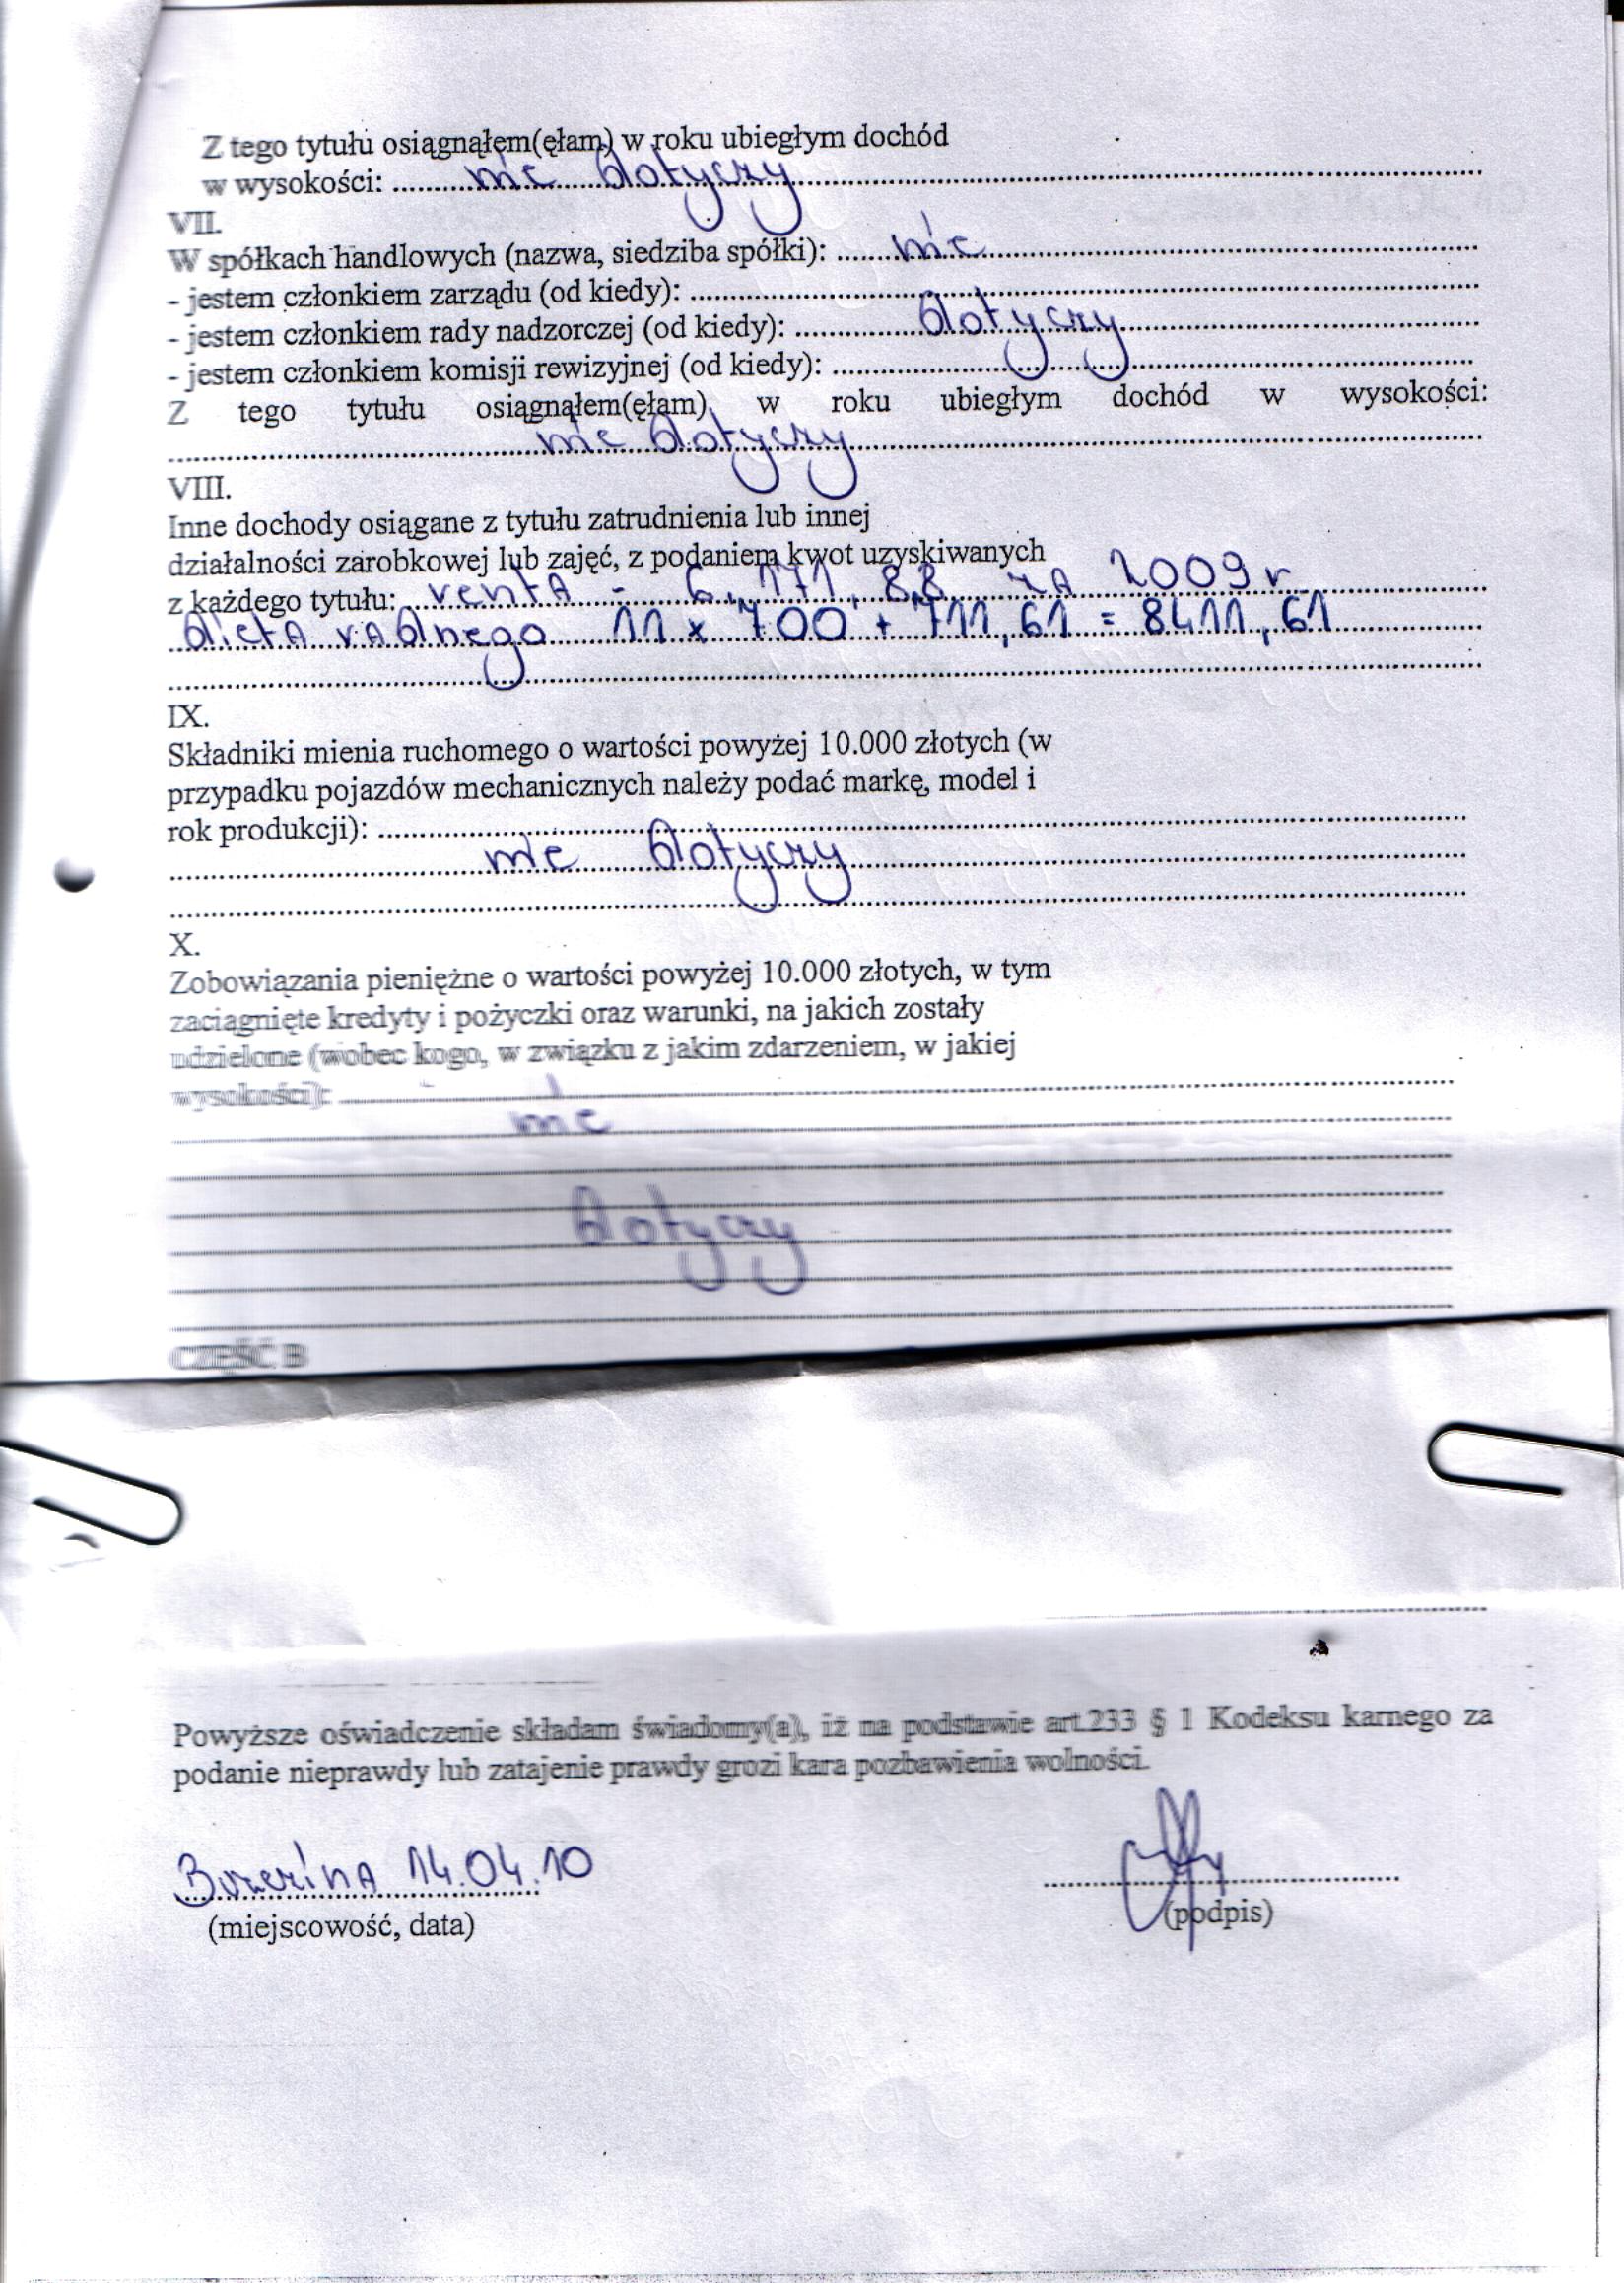 Z tego tytułu osiągnąłem(ęłam) w roku ubiegłym dochód
w wysokości: ..........nie dotyczy..........
VII.
W spółkach handlowych (nazwa, siedziba spółki): ..........nie..........
- jestem członkiem zarządu (od kiedy): ....................
- jestem członkiem rady nadzorczej (od kiedy): ..........dotyczy..........
- jestem członkiem komisji rewizyjnej (od kiedy): ....................
Z tego tytułu osiągnąłem(ęłam) w roku ubiegłym dochód w wysokości:
..........nie dotyczy..........
VIII.
Inne dochody osiągane z tytułu zatrudnienia lub innej
działalności zarobkowej lub zajęć, z podaniem kwot uzyskiwanych
z każdego tytułu: renta - 6.171,88 za 2009 r.
dieta radnego 11 x 700 + 711,61 = 8411,61
IX.
Składniki mienia ruchomego o wartości powyżej 10.000 złotych (w
przypadku pojazdów mechanicznych należy podać markę, model i
rok produkcji): ....................
..........nie dotyczy..........
X.
Zobowiązania pieniężne o wartości powyżej 10.000 złotych, w tym
zaciągnięte kredyty i pożyczki oraz warunki, na jakich zostały
udzielone (wobec kogo, w związku z jakim zdarzeniem, w jakiej
wysokości): ....................
nie
dotyczy
CZĘŚĆ B
Powyższe oświadczenie składam świadomy(a), iż na podstawie art.233 § 1 Kodeksu karnego za
podanie nieprawdy lub zatajenie prawdy grozi kara pozbawienia wolności.
14.04.10
(miejscowość, data) (podpis)